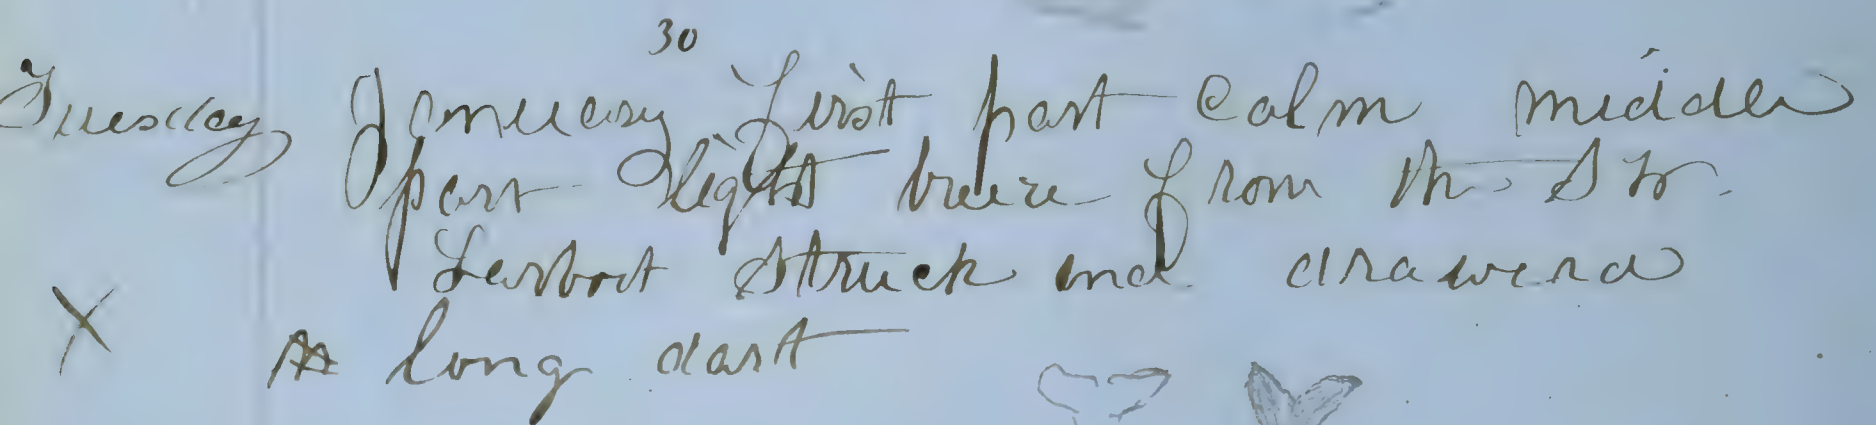 30
Tuesday January first part Calm midder
part light breeze from th. S W.
Larbort struck and drawerd
A long dart